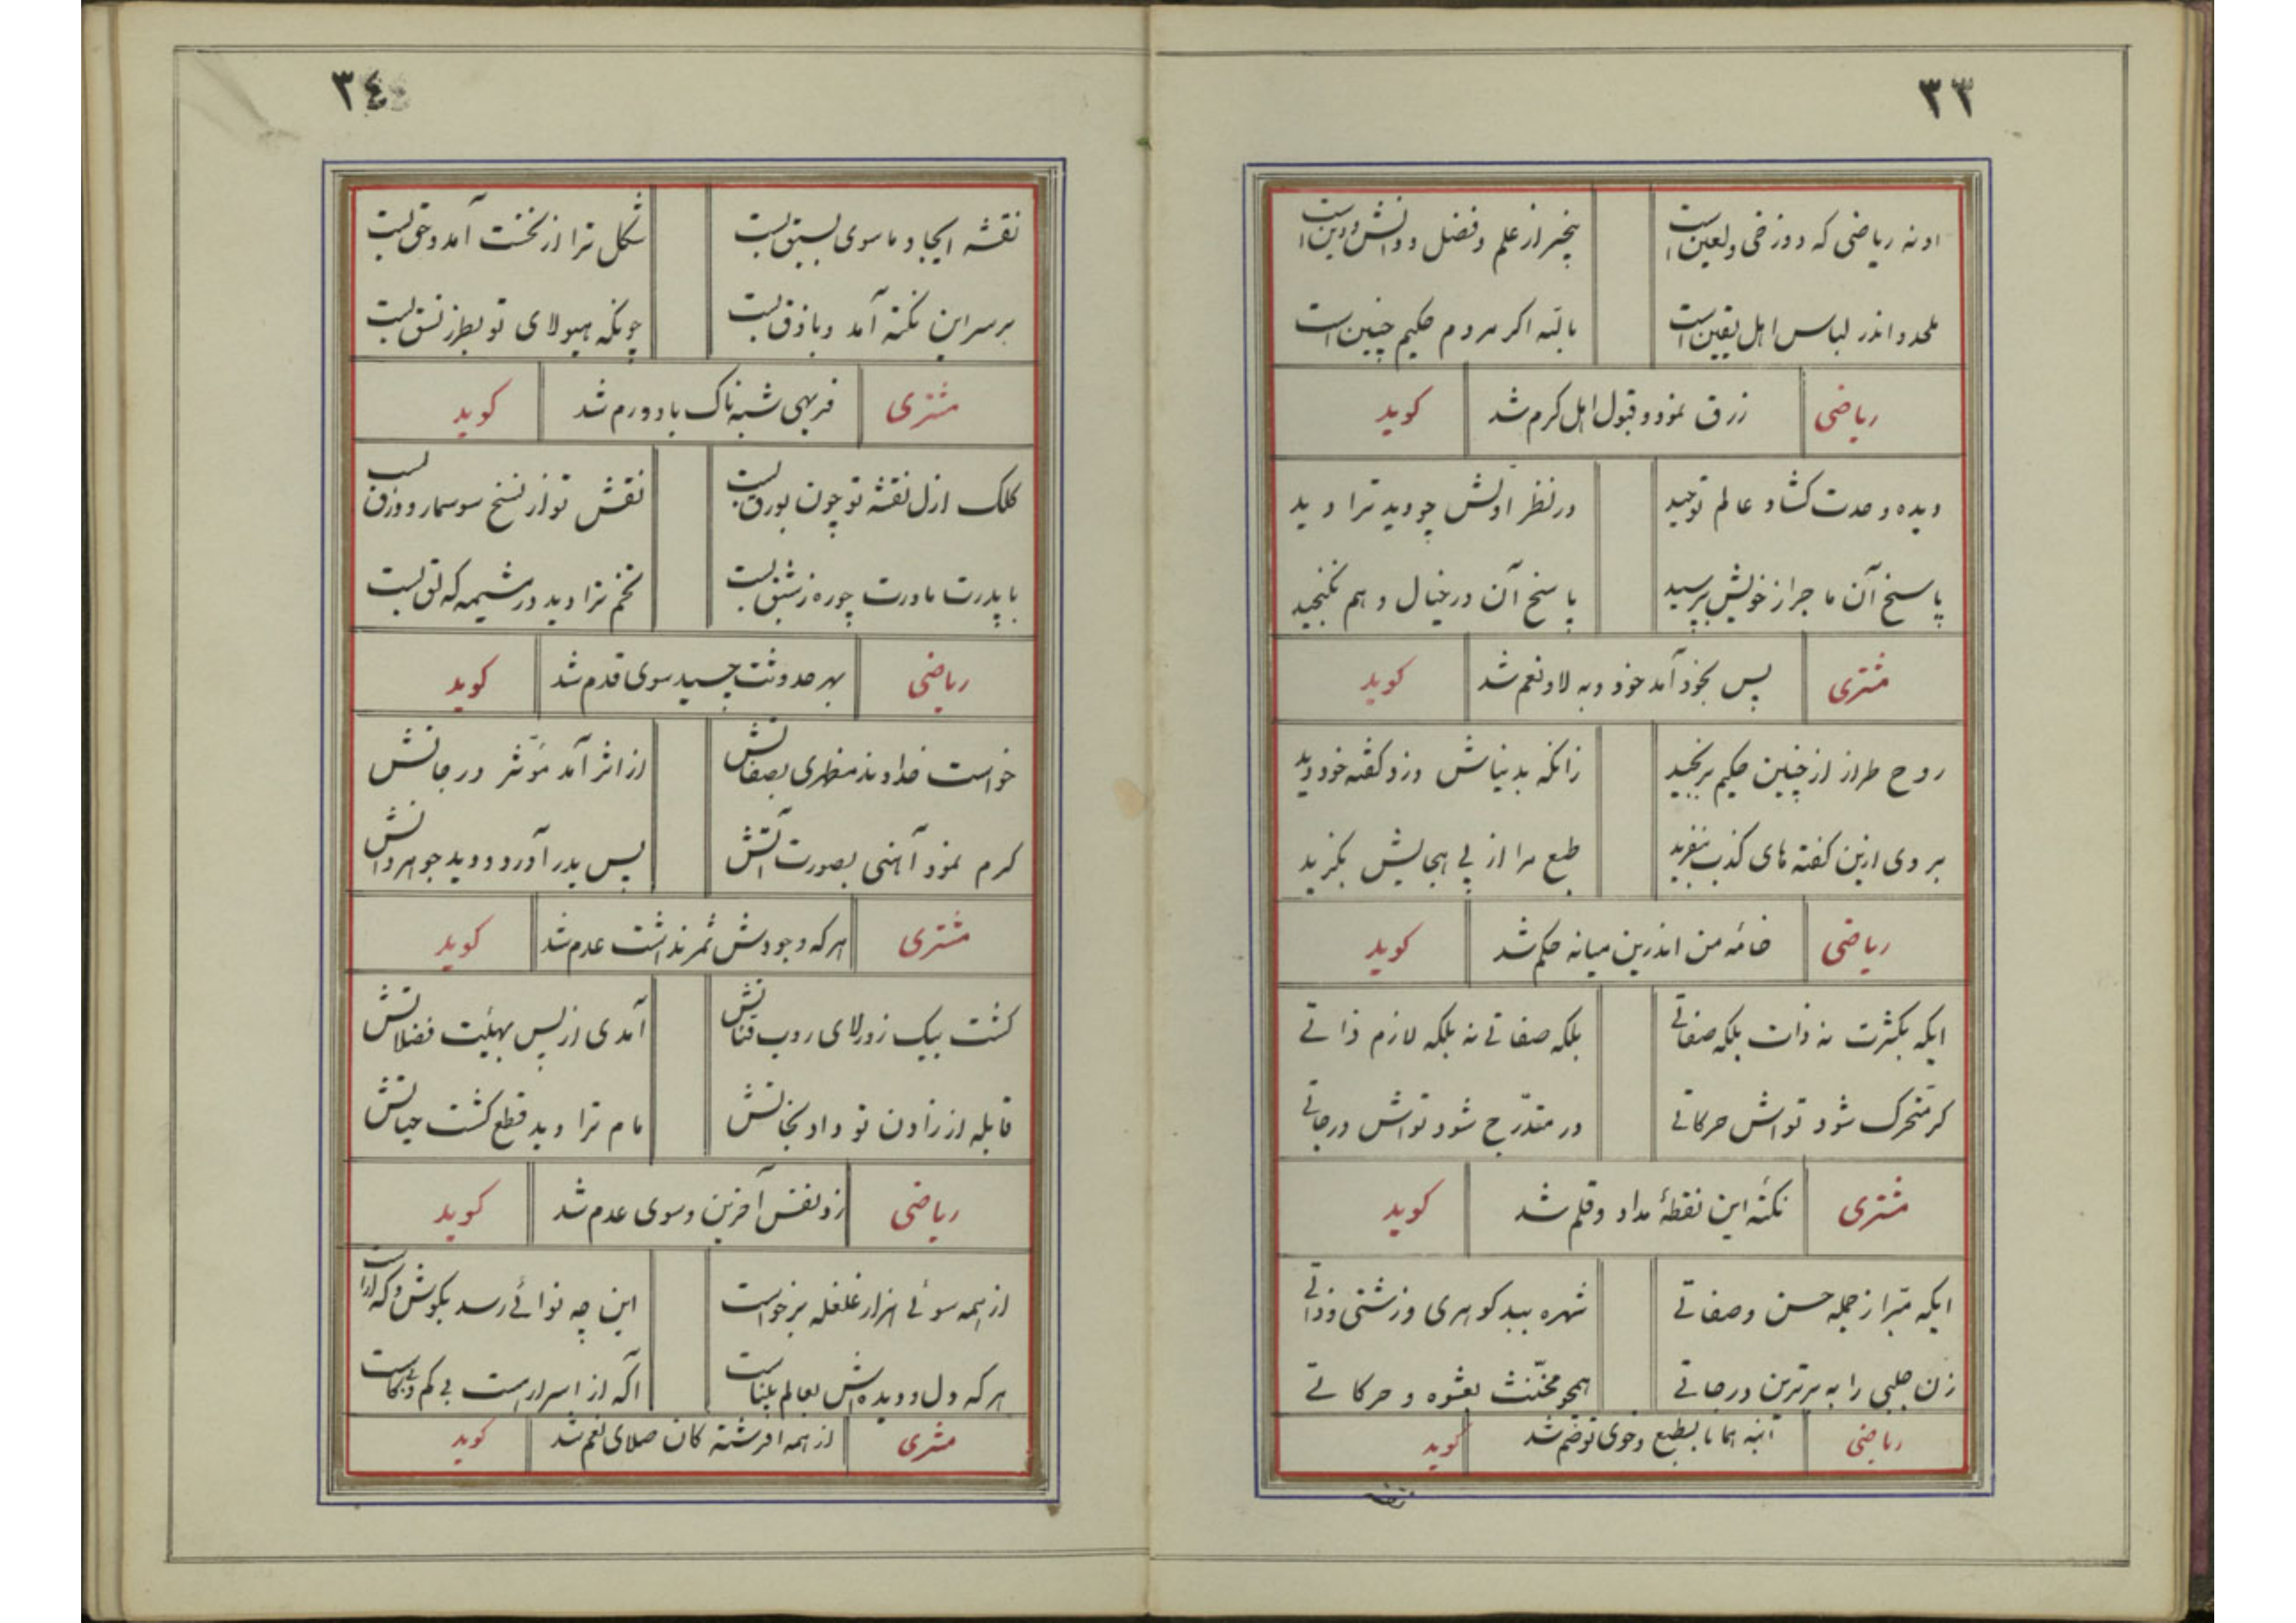 ٣٣
او نه ریاضی که دوزخی و لعین است بیخبر از علم و فضل و دانش و دین است
ملحد و اندر لباس اهل یقین است بالله اگر مردم حکیم چنین است
ریاضی زرق نمود و قبول اهل کرم شد کوید
دیده وحدت کشاد عالم توحید در نظر اولش چو دید ترا دید
پاسخ آن ماجرا ز خویش بپرسید پاسخ آن در خیال و هم نکنجید
مشتری پس بخود آمد خود و به لا و نعم شد کوید
روح طراز از چنین حکیم برنجید زانکه بدنیاش دزد کفته خود دید
بر وی ازین کفته های کذب بنفرید طبع مرا از پی هجایش بکزید
ریاضی خامه من اندرین میانه حکم شد کوید
ایکه بکثرت نه ذات بلکه صفاتی بلکه صفاتی نه بلکه لازم ذاتی
کر متحرک شود تواش حرکاتی ور متدرّج شود تواش درجاتی
مشتری نکتهٔ این نقطهٔ مداد و قلم شد کوید
ایکه مبّرا ز جمله حسن و صفاتی شهره ببد کوهری و زشتی و ذاتی
زن جلبی را به برترین درجاتی همچو مخنّث بعشوه و حرکاتی
ریاضی ابنه همانا بطبع و خوی تو ضم شد کوید
٣٤
نقشه ایجاد ماسوی بسبق بست شکل ترا از نخست آمد و حق بست
بر سر این نکته آمد و باذق بست چونکه هیولای تو بطرز نسق بست
مشتری فربهی شبه ناک باد و ورم شد کوید
کلک ازل نقشه تو چون بورق بست نقش تو از نسخ سوسمار و وزق بست
با پدرت مادرت چو ره ز شبق بست تخم ترا دید در مشیمه که لق بست
ریاضی بهر حدوثت چسید سوی قدم شد کوید
خواست خداوند مظهری بصفاتش از اثر آمد مؤثر درجاتش
کرم نمود آهنی بصورت آتش پس بدر آورد و دید جوهر ذاتش
مشتری هر که وجودش ثمر نداشت عدم شد کوید
کشت بیک زور لای روب قناتش آمدی از پس بهیئت فضلاتش
قابله از زادن تو داد نجاتش مام ترا دید قطع کشت حیاتش
ریاضی زد نفس آفرین و سوی عدم شد کوید
از همه سوئی هزار غلغله برخواست این چه نوائی رسد بکوش و که آراست
هر که دل و دیده اش بعالم بیناست آکه از اسرار است بی کم و بی کاست
مشتری از همه افرشته کان صلای نعم شد کوید